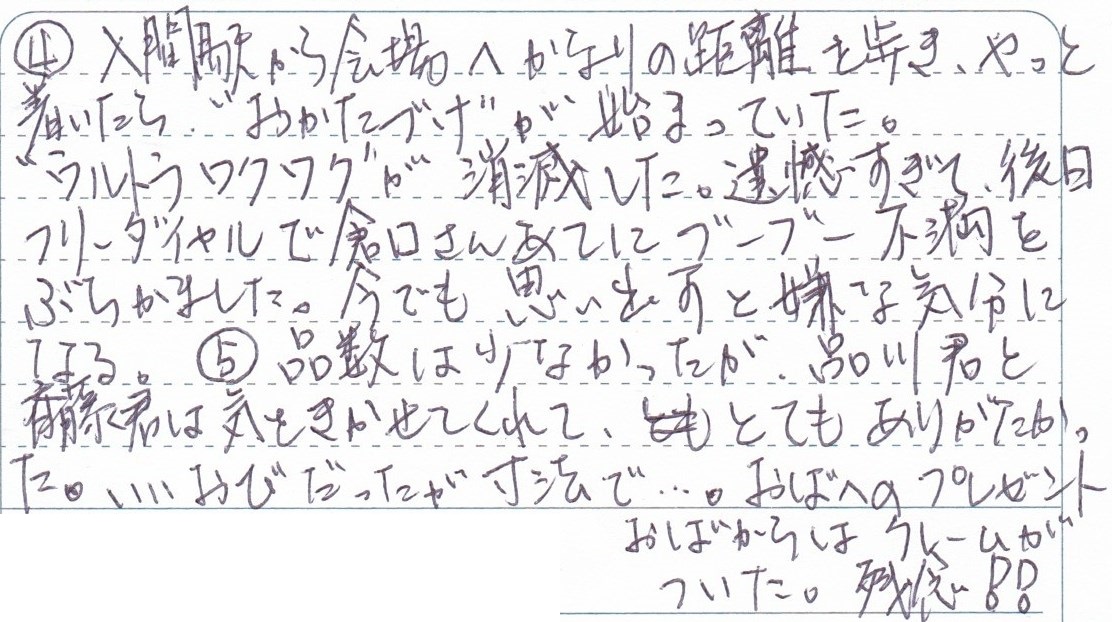 ④ 入間駅から会場へかなりの距離を歩き、やっと
着いたら、"おかたづけ"が始まっていた。
"ウルトラワクワク"が消滅した。遺憾すぎて、後日
フリーダイヤルで倉口さんあてにブーブー不満を
ぶちかました。今でも思い出すと嫌な気分に
なる。 ⑤ 品数は少なかったが、品川君と
斉藤君は気をきかせてくれて、とてもありがたかっ
た。いいおびだったが寸法で…。おばへのプレゼント
おばからはクレームが
ついた。残念!!